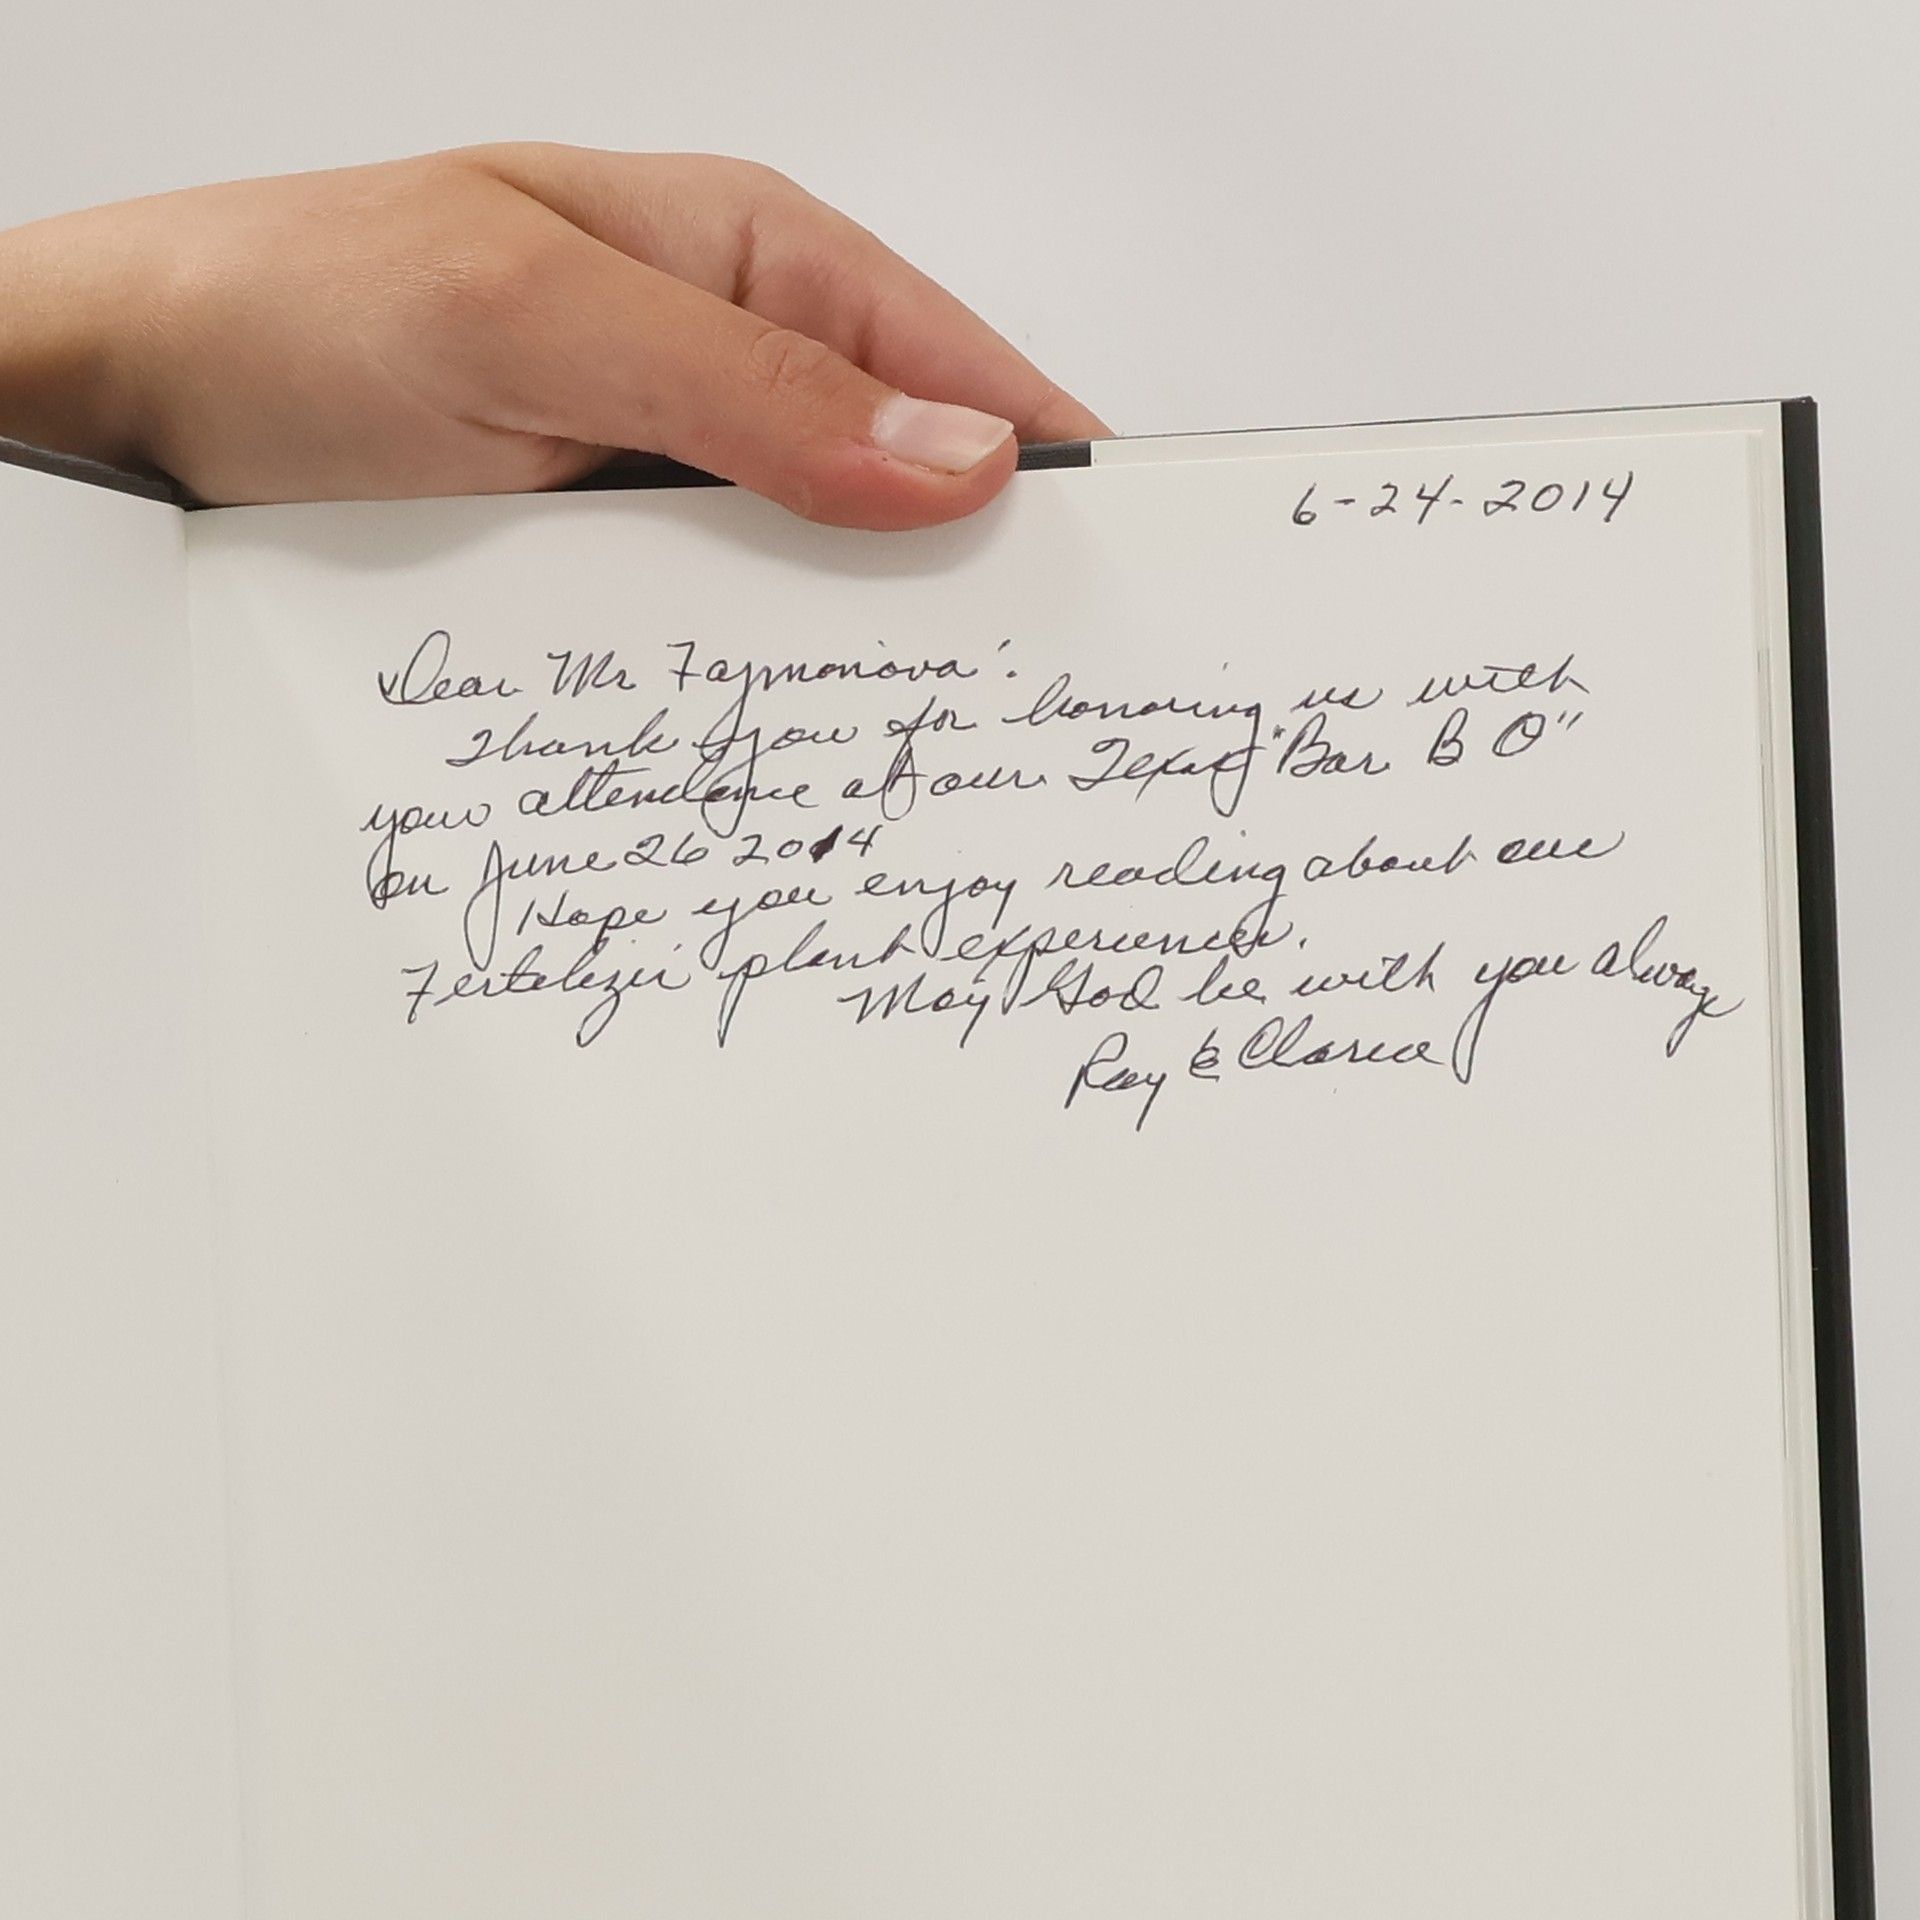 6-24-2014
Dear Mr Fajmonova:
Thank you for honoring us with
your attendance at our Texas "Bar B Q"
on June 26 2014
Hope you enjoy reading about our
Fertilizer plant experiences.
May God be with you always
Ray & Clarice